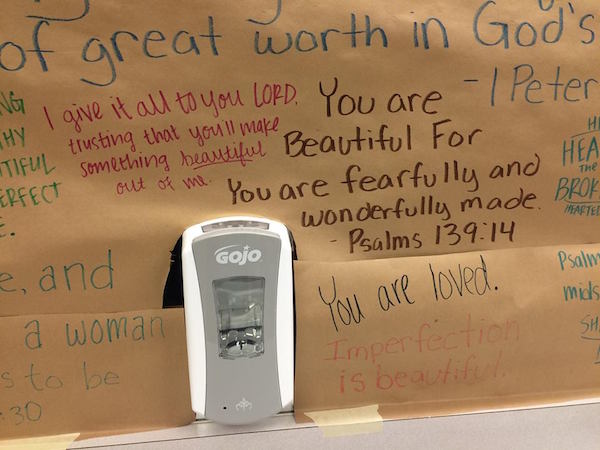 of great worth in God's
- 1 Peter
NG
HY
TIFUL
ERFECT
E.
I give it all to you LORD,
trusting that you'll make
something beautiful
out of me.
You are
Beautiful For
You are fearfully and
wonderfully made.
- Psalms 139:14
HEA
THE
BROK
HEARTED
e, and
a woman
s to be
:30
GOJO
You are loved.
Imperfection
is beautiful.
Psalm
mids
SH